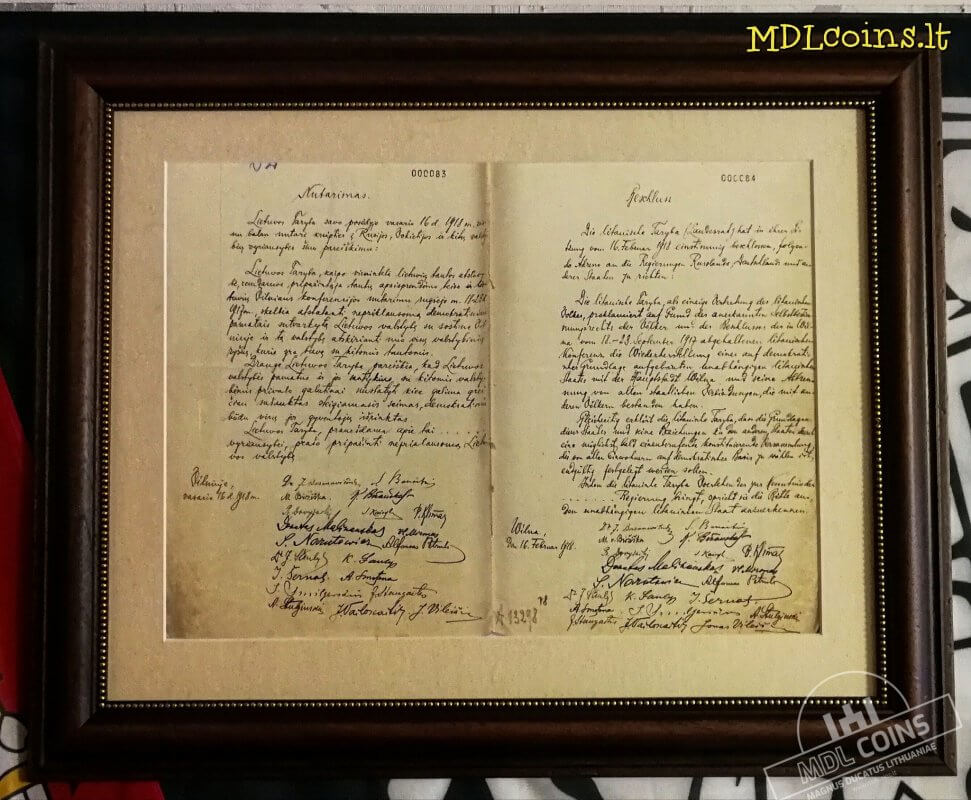 MDLcoins.lt
000083
Nutarimas.
Lietuvos Taryba savo posėdyje vasario 16 d. 1918 m. vienu
balsu nutarė kreiptis į Rusijos, Vokietijos ir kitų valsty-
bių vyriausybes šiuo pareiškimu:
Lietuvos Taryba, kaipo vienintelė lietuvių tautos atstovy-
bė, remdamos pripažintąja tautų apsisprendimo teise ir lie-
tuvių Vilniaus konferencijos nutarimu rugsėjo m. 18-23 d.
1917 m., skelbia atstatanti nepriklausomą demokratiniais
pamatais sutvarkytą Lietuvos valstybę su sostine Vil-
niuje ir tą valstybę atskirianti nuo visų valstybinių
ryšių, kurie yra buvę su kitomis tautomis.
Drauge Lietuvos Taryba pareiškia, kad Lietuvos
valstybės pamatus ir jos santykius su kitomis valsty-
bėmis privalo galutinai nustatyti kiek galima grei-
čiau sušauktas steigiamasis seimas, demokratiniu
būdu visų jos gyventojų išrinktas.
Lietuvos Taryba, pranešdama apie tai
vyriausybei, prašo pripažinti nepriklausomą Lietu-
vos valstybę.
Vilniuje,
vasario 16 d. 1918 m.
S. Banaitis
M. Biržiška
Donatas Malinauskas
S. Narutowicz Alfonsas Petrulis
K. Šaulys
J. Šernas A. Smetona
J. Vileišis
000084
Beschluss
Die litauische Taryba (Landesrat) hat in ihrer Si-
tzung vom 16. Februar 1918 einstimmig beschlossen, folgen-
de Adresse an die Regierungen Russlands, Deutschlands und an-
derer Staaten zu richten:
Die litauische Taryba, als einzige Vertretung des litauischen
Volkes, proklamiert auf Grund des anerkannten Selbstbestim-
mungsrechts der Völker und des Beschlusses der in Wil-
na vom 18.-23. September 1917 abgehaltenen litauischen
Konferenz die Wiederherstellung eines auf demokrati-
scher Grundlage aufgebauten unabhängigen litauischen
Staates mit der Hauptstadt Wilna und seine Abtren-
nung von allen staatlichen Verbindungen, die mit an-
deren Völkern bestanden haben.
Gleichzeitig erklärt die litauische Taryba, dass die Grundlagen
dieses Staates und seine Beziehungen zu den anderen Staaten durch
eine möglichst bald einzuberufende konstituierende Versammlung,
die von allen Einwohnern auf demokratischer Basis zu wählen ist,
endgültig festgelegt werden sollen.
Indem die litauische Taryba Vorstehendes zur Kenntnis der
Regierung bringt, spricht sie die Bitte aus,
den unabhängigen litauischen Staat anzuerkennen.
Wilna,
den 16. Februar 1918.
S. Banaitis
Donatas Malinauskas
S. Narutowicz Alfonsas Petrulis
K. Šaulys J. Šernas
A. Smetona
Jonas Vileišis
A 13298
MDL COINS
MAGNUS DUCATUS LITHUANIAE